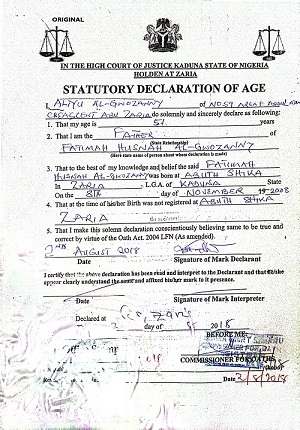 ORIGINAL
IN THE HIGH COURT OF JUSTICE KADUNA STATE OF NIGERIA
HOLDEN AT ZARIA
STATUTORY DECLARATION OF AGE
I, ALIYU AL-GWOZANNY of NO 59 AREA F
CRESCENT ABU ZARIA do solemnly and sincerely declare as following:
1. That my age is 51 years
2. That I am the FATHER of
(State Relationship)
FATIMAH HUSNAH AL-GWOZANNY
(Here state name of person about whose declaration is made)
3. That to the best of my knowledge and belief the said FATIMAH
HUSNAH AL-GWOZANY was born at ABUTH SHIKA
In ZARIA L.G.A. of KADUNA State
On the 8TH day of NOVEMBER 2008
4. That at the time of his/her Birth was not registered at ABUTH SHIKA
ZARIA
5. That I make this solemn declaration consciously believing same to be true and
correct by virtue of the Oath Act. 2004 LFN (As amended).
2ND AUGUST 2018
Date Signature of Mark Declarant
I certify that the above declaration has been read and interpret to the Declarant and that he/she
appear clearly understand the same and affixed his/her mark to it presence.
Date Signature of Mark Interpreter
Declared at Zaria
2 day of 8 2018
BEFORE ME:
COMMISSIONER FOR OATHS
(Kobo)
Date 2/8/2018